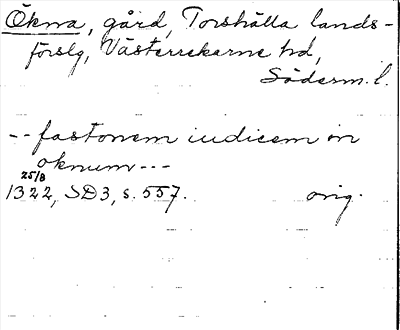 Ökna, gård, Torshälla lands-
förslg, Västerrekarne hd,
Söderm. l.
-- fastonem iudicem in
oknum ---
25/8
1322, SD3, s. 557. orig.